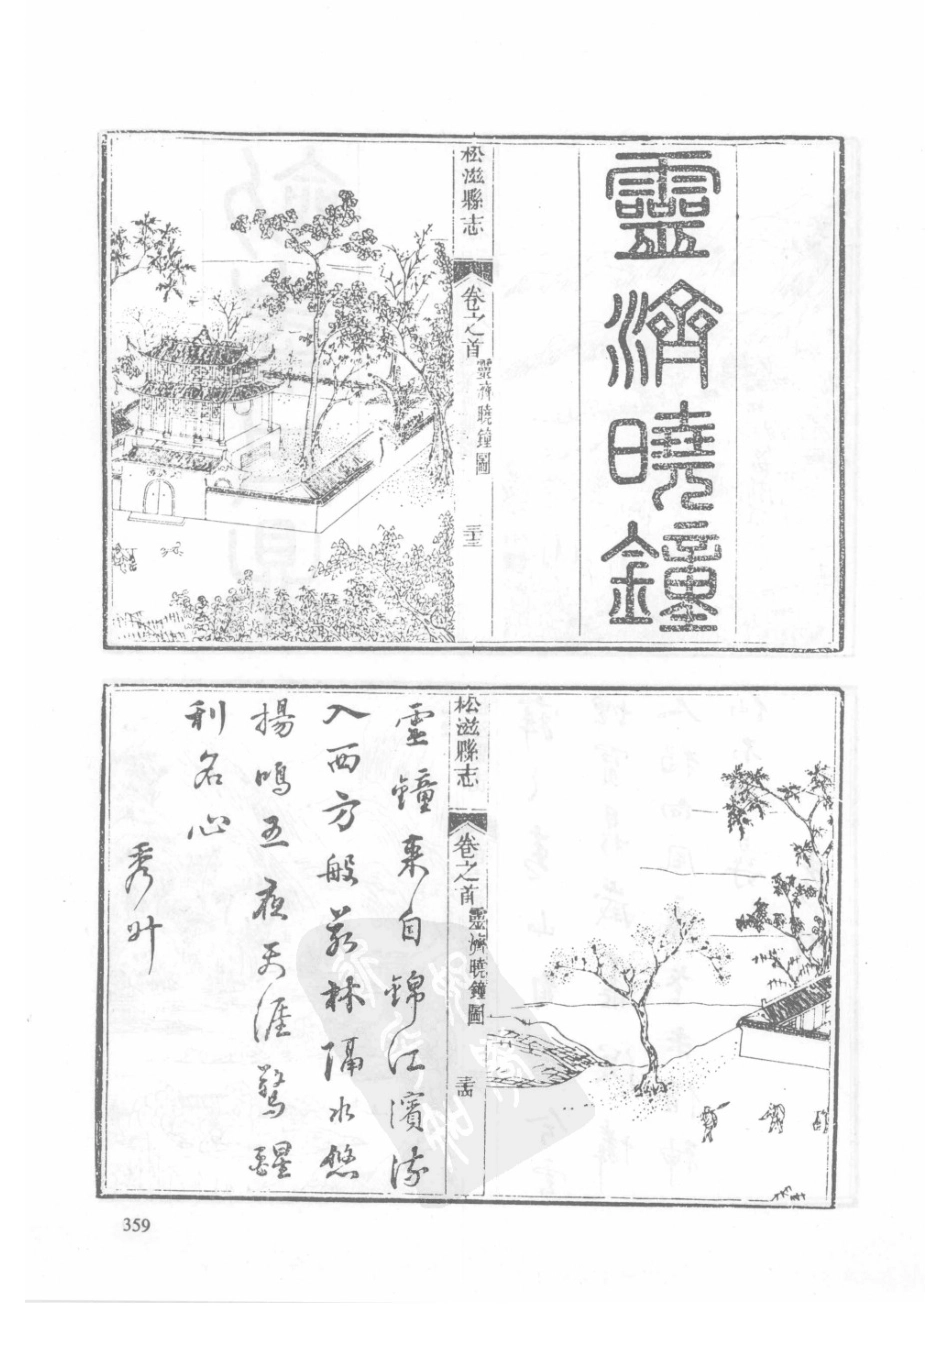 靈濟曉鐘
松滋縣志
卷之首
靈濟曉鐘圖
三十三
松滋縣志
卷之首
靈濟曉鐘圖
三十四
靈鐘來自錦江濱流
入西方般若林隔水悠
揚鳴五夜天涯驚醒
利名心
秀叶
359